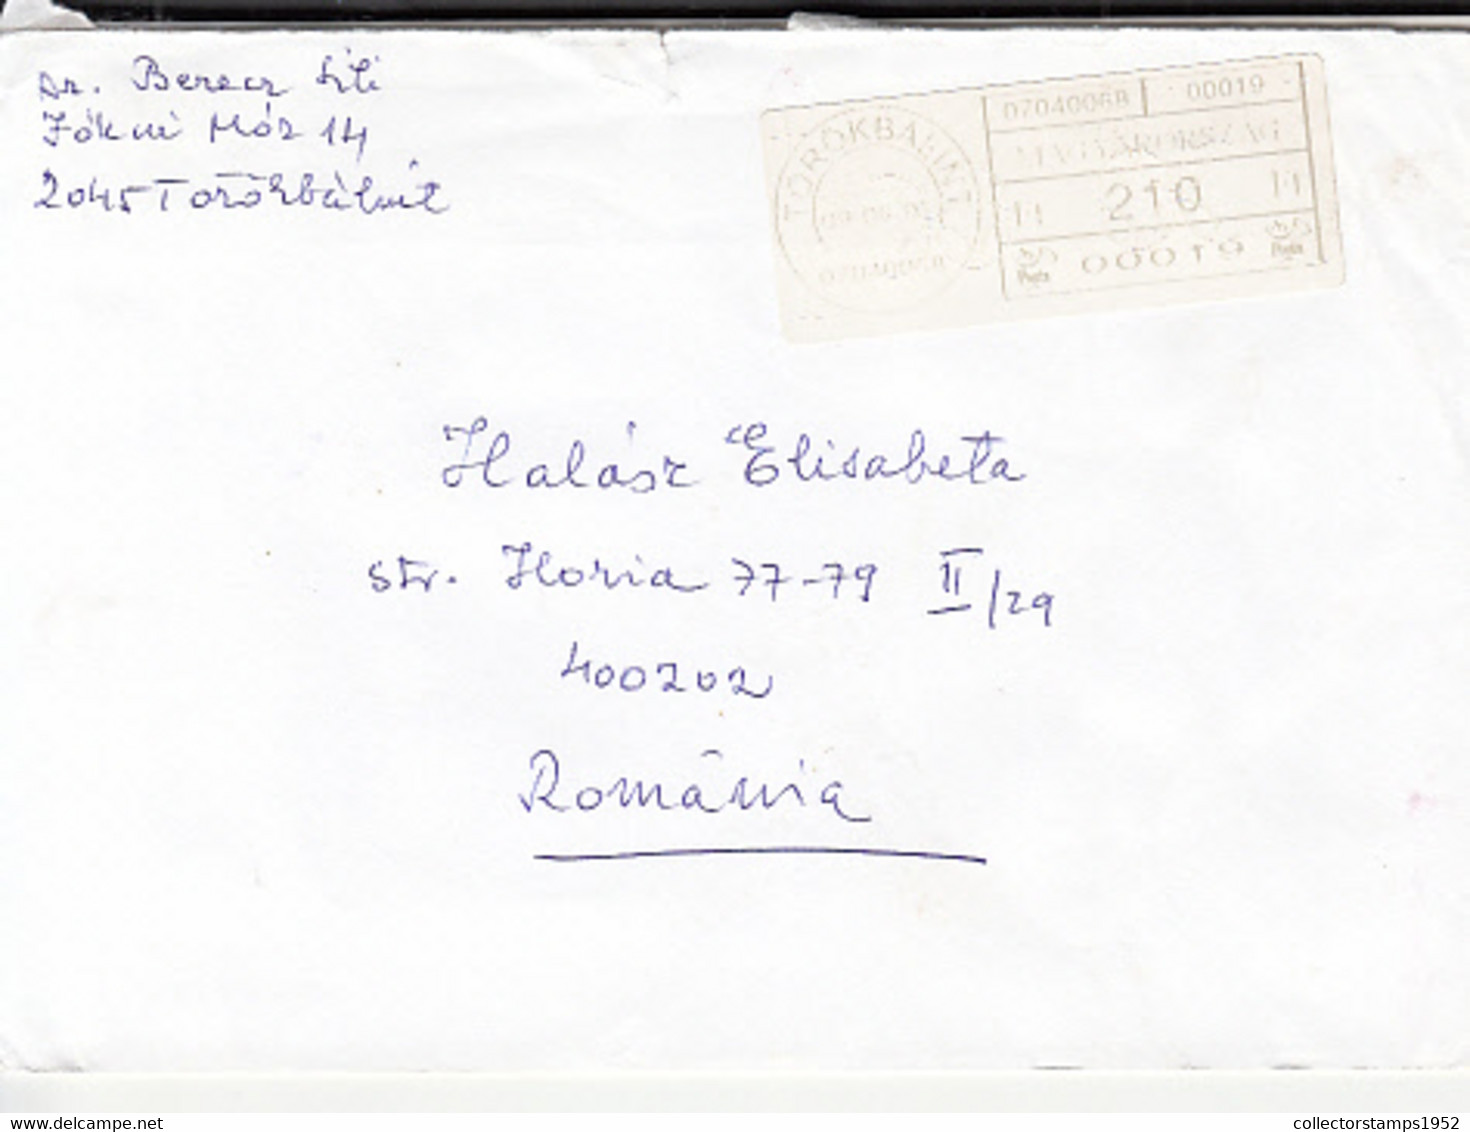 Dr. Berecz Lili
Jókai Mór 14
2045 Törökbálint
TÖRÖKBÁLINT
07040068 00019
MAGYARORSZÁG
Ft 210 Ft
Posta 00019 Posta
Halász Elisabeta
str. Horia 77-79 II/29
400202
România
collectorstamps1952